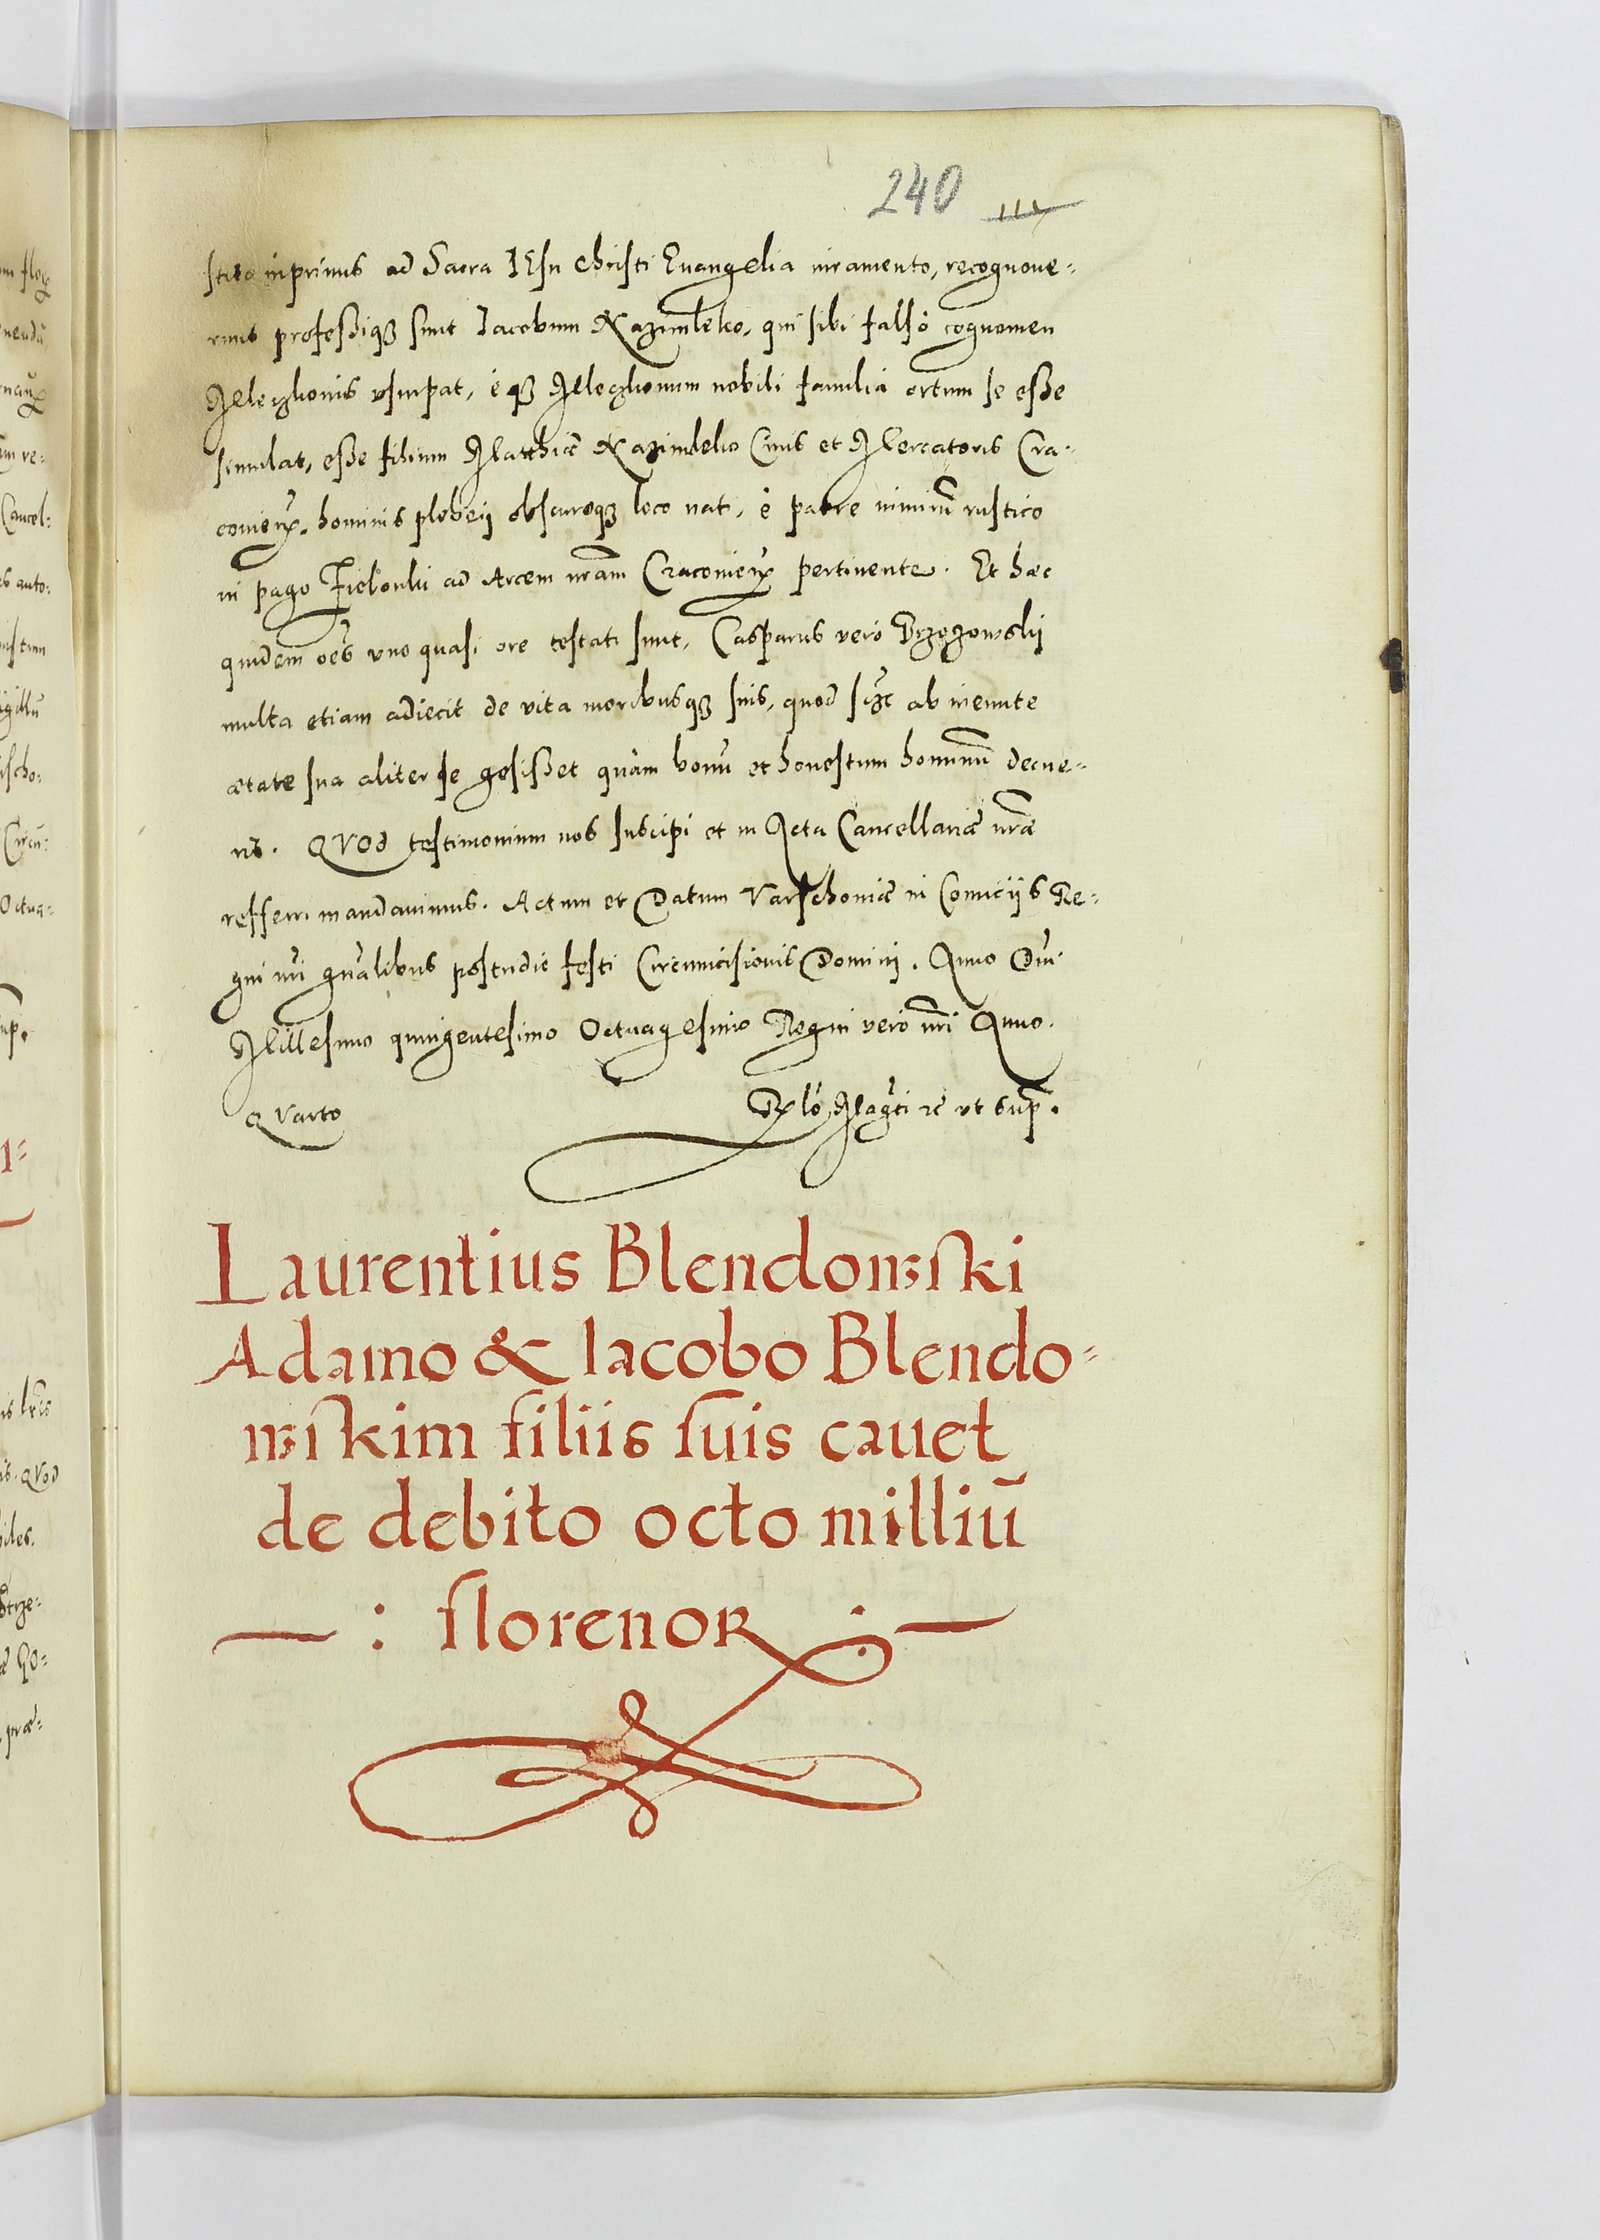 240
stito inprimis ad Sacra IEsu christi Euangelia iuramento, recognoue-
runt professiq3 sunt Iacobum Kazimleko, qui sibi falsò cognomen
vsurpat, è q3 nobili familia ortum se esse
simulat, esse filium Matthiæ Ciuis et Mercatoris Cra-
couien. hominis plebeij obscuroq3 loco nati, è patre nimirũ rustico
in pago ad Arcem nr̃am Cracouien pertinente. Et hæc
quidem oẽs vno quasi ore testati sunt, Casparus verò Brzozowskij
multa etiam adiecit de vita moribusq3 suis, quod ab ineunte
ætate sua aliter se gessisset quàm bonũ et honestum hominũ decue-
rit. QVOd testimonium nos suscipi et in Acta Cancellariæ nr̃æ
refferri mandauimus. Actum et Datum Varschouiæ in Comicijs Re-
gni nr̃i gn̄alibus postridie festi Circumcisionis Domini. Anno Dñi
Millesimo quingentesimo Octuagesimo Regni verò nr̃i Anno.
QVarto
ut sup.
Laurentius Blendowski
Adamo & Iacobo Blendo-
wskim filiis suis cauet
de debito octo milliũ
: florenoꝝ :